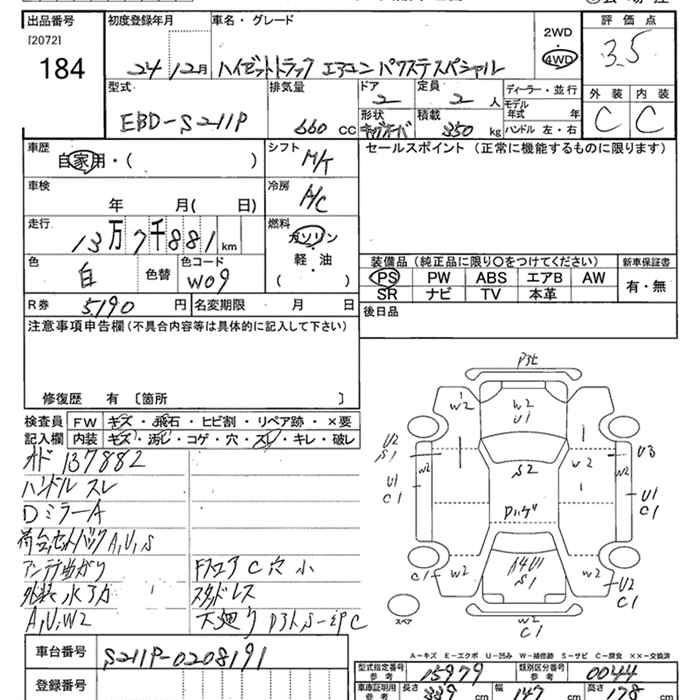 出品番号
[2072]
184
初度登録年月
24 12月
車名・グレード
ハイゼットトラック エアコン パワステスペシャル
2WD
4WD
評価点
3.5
外装 内装
C C
型式
EBD-S211P
排気量
660 CC
ドア
2
定員
2 人
形状
積載
350 kg
ディーラー・並行
モデル
年式 年
ハンドル 左・右
車歴
自家用・( )
シフト
M/T
セールスポイント (正常に機能するものに限ります)
車検
年 月( 日)
冷房
A/C
走行
13万7千881km
燃料
ガソリン
軽・油
( )
色
白
色替
色コード
W09
装備品 (純正品に限り〇をつけてください)
PS PW ABS エアB AW
SR ナビ TV 本革
新車保証書
有・無
R券 5190 円
名変期限 月 日
後日品
注意事項申告欄 (不具合内容等は具体的に記入して下さい)
修復歴 有 [箇所 ]
検査員
記入欄
FW キズ・飛石・ヒビ割・リペア跡・×要
内装 キズ・汚レ・コゲ・穴・スレ・キレ・破レ
オド 137882
ハンドル スレ
Dミラー A
A,U,S
A,U,W2
Fフロア C 穴 小
スタッドレス
下廻り
W2
W2
U1
U2
S1
W2
U1
C1
S2
W2
W2
U3
U1
C1
C1
W2
A4U1
S1
W2
U2
C1
W2
C1
スペア
A-キズ E-エクボ U-凹み W-補修跡 S-サビ C-腐食 ××-交換済
車台番号
S211P-0208191
登録番号
型式指定番号
参考
15979
類別区分番号
参考
0044
車庫証明用
参考
長さ 339 cm
幅 147 cm
高さ 178 cm